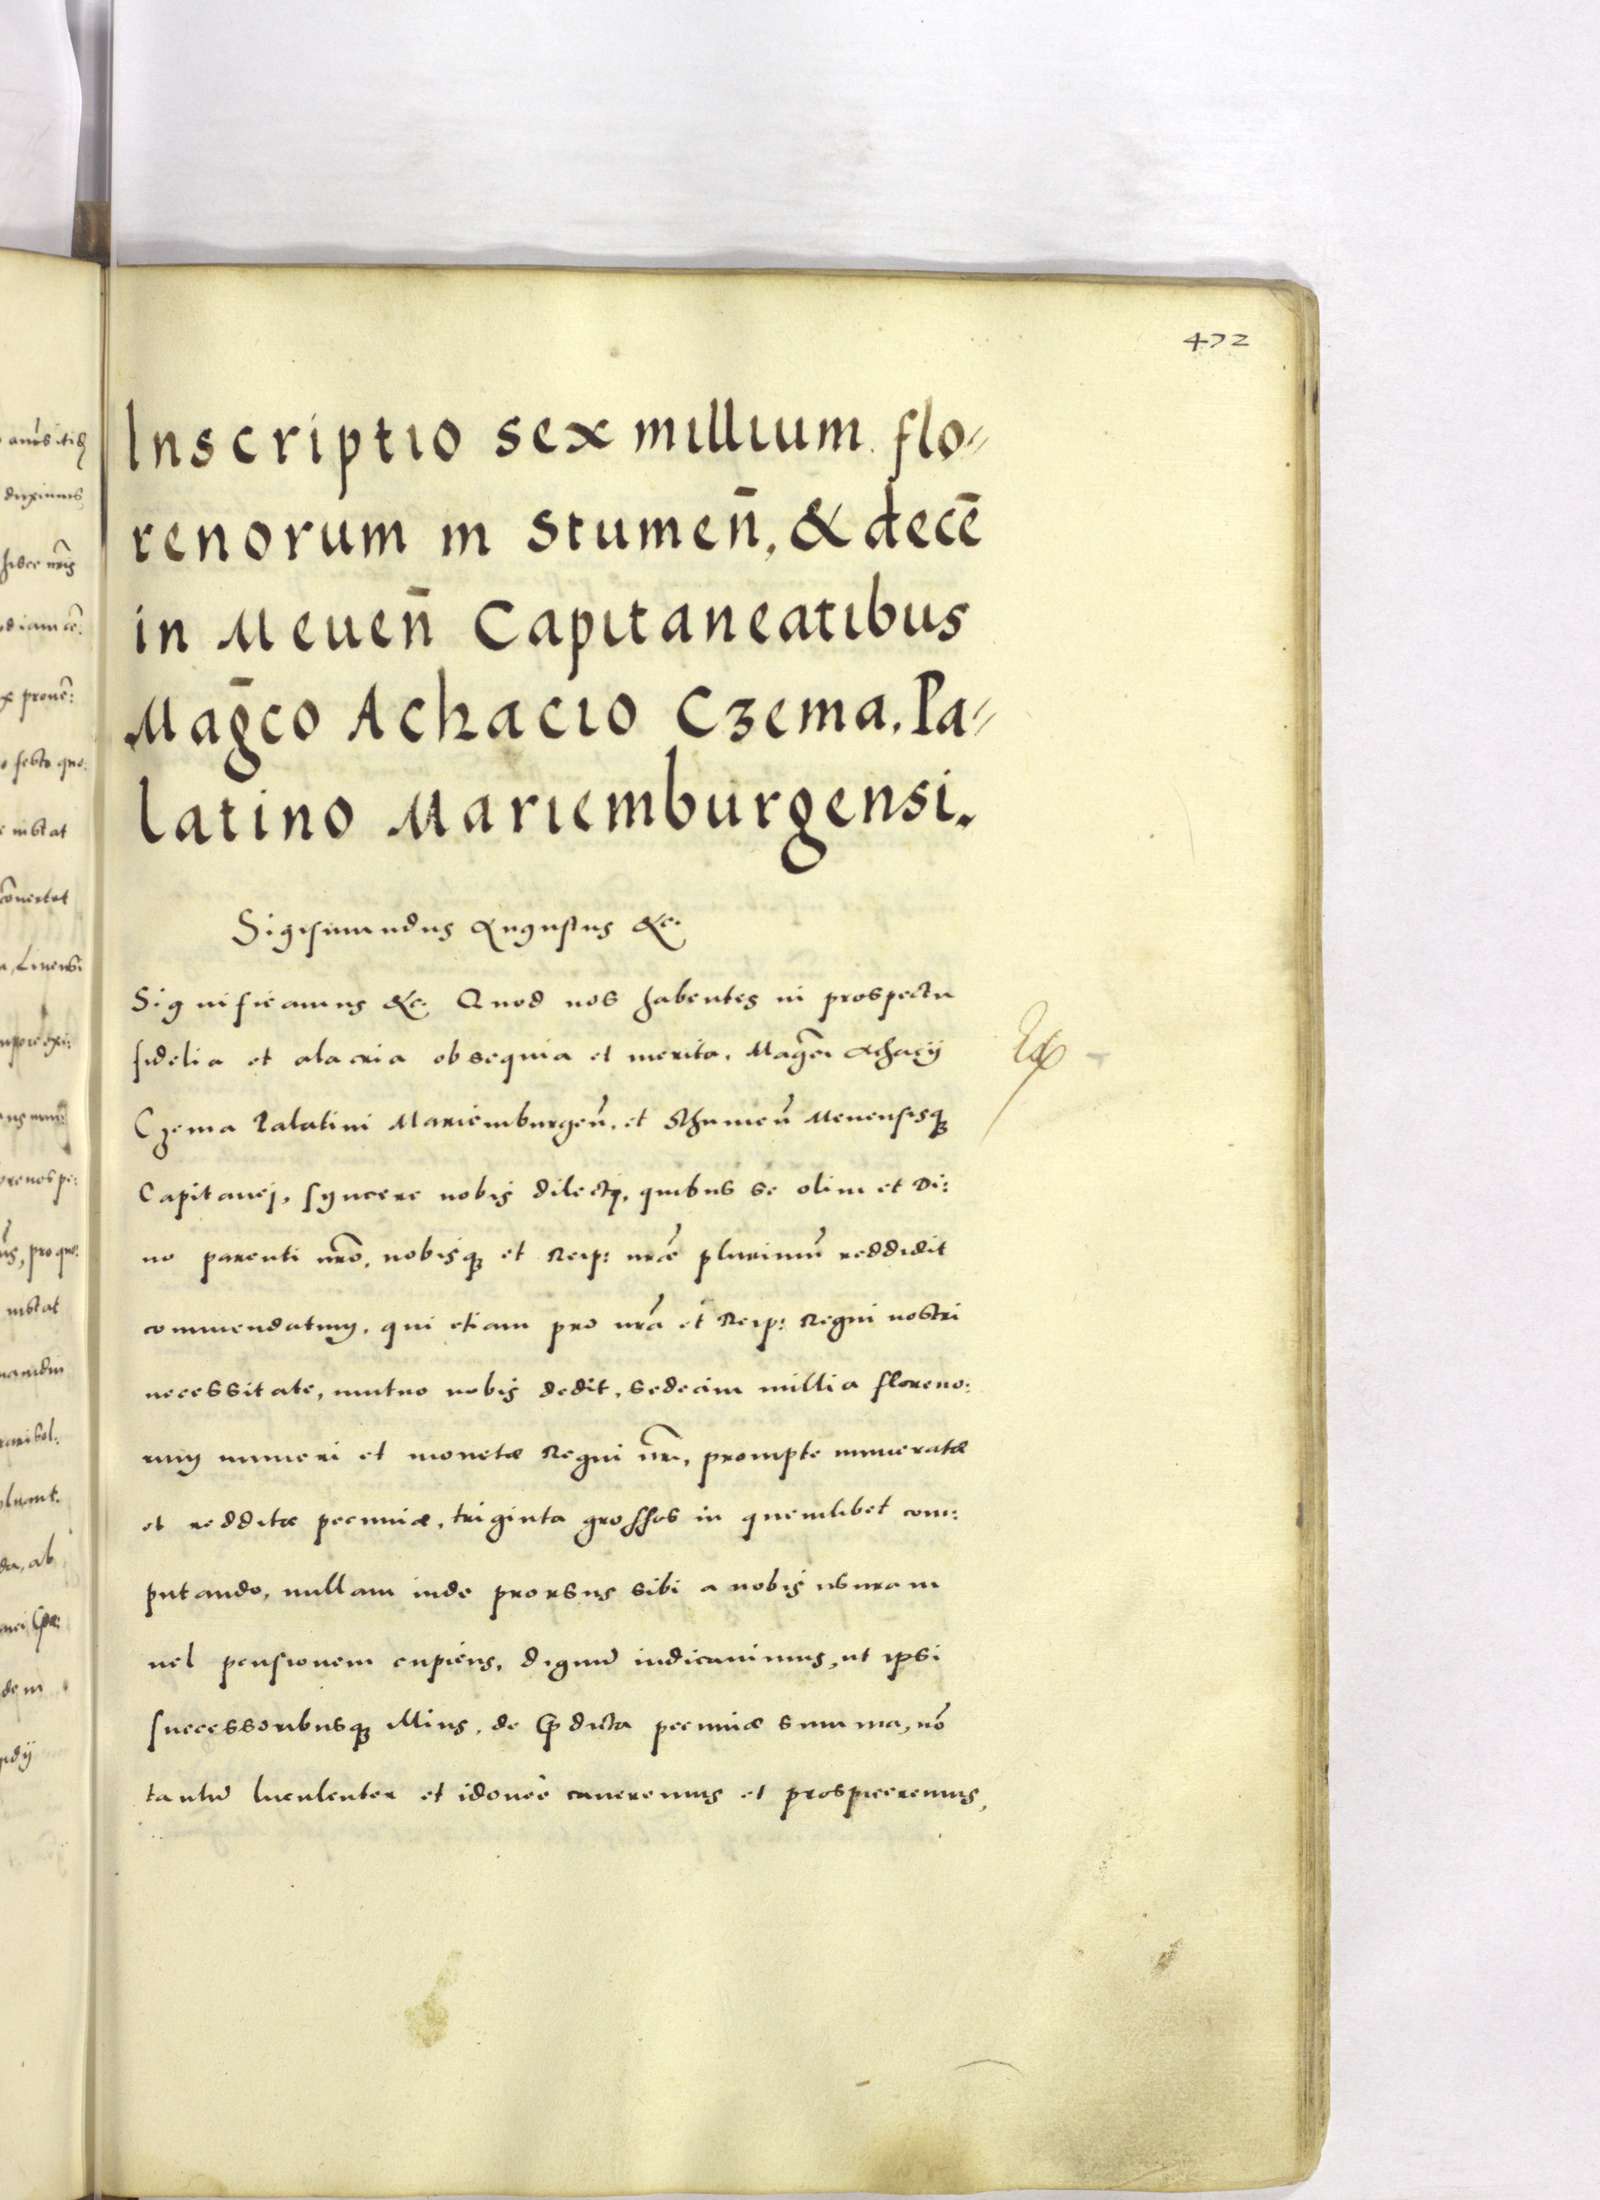 472
Inscriptio sex millium flo=
renorum in Stumeñ, & decē
in Meueñ Capitaneatibus
Mag̃co Achacio Czema. Pa=
latino Mariemburgensi.
Sigismundus Augustus &c.
Significamus &c. Quod nos habentes in prospectu
fidelia et alacria obsequia et merita, Mag̃ci Achacij
Czema Palatini Mariemburgeñ. et Sthumeñ Meuensisq3
Capitanej, syncere nobis dilecti, quibus se olim et Di:
uo parenti nr̃o, nobisq3 et Reip: nr̃æ plurimũ reddidit
commendatum, qui etiam pro nr̃a et Reip: Regni nostri
necessitate, mutuo nobis dedit, sedecim millia floreno:
rum numeri et monetæ Regni nr̃i, prompte numeratæ
et redditæ pecuniæ, triginta grossos in quemlibet com:
putando, nullam inde prorsus sibi a nobis usuram
uel pensionem cupiens, dignũ iudicauimus, ut ipsi
successoribusq3 illius, de p̃dicta pecuniæ summa, nõ
tantũ luculenter et idoneè caueremus et prospiceremus,